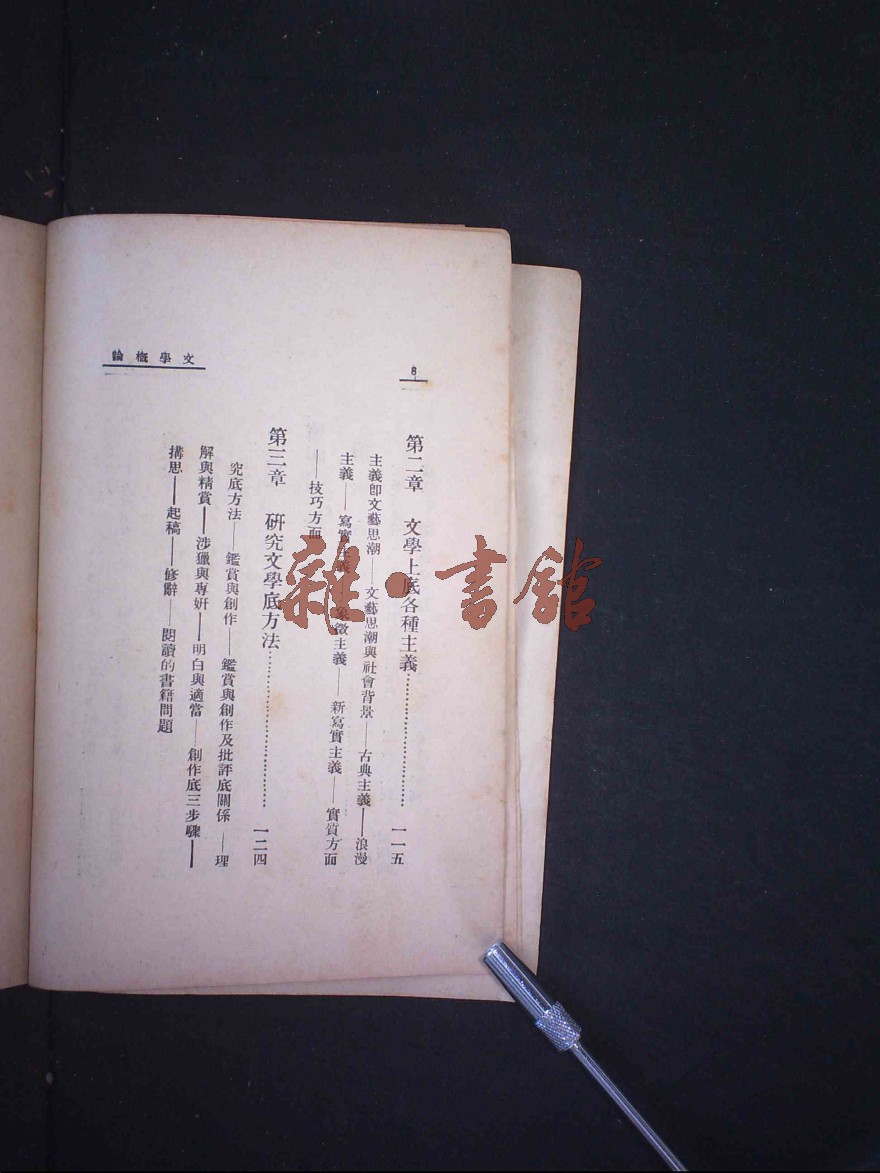 文學概論
8
第二章 文學上底各種主義……………一一五
主義卽文藝思潮——文藝思潮與社會背景——古典主義——浪漫
主義——寫實主義——象徵主義——新寫實主義——實質方面
——技巧方面
第三章 研究文學底方法……………一二四
究底方法——鑑賞與創作——鑑賞與創作及批評底關係——理
解與精賞——涉獵與專姸——明白與適當——創作底三步驟——
搆思——起稿——修辭——閱讀的書籍問題
雜·書館